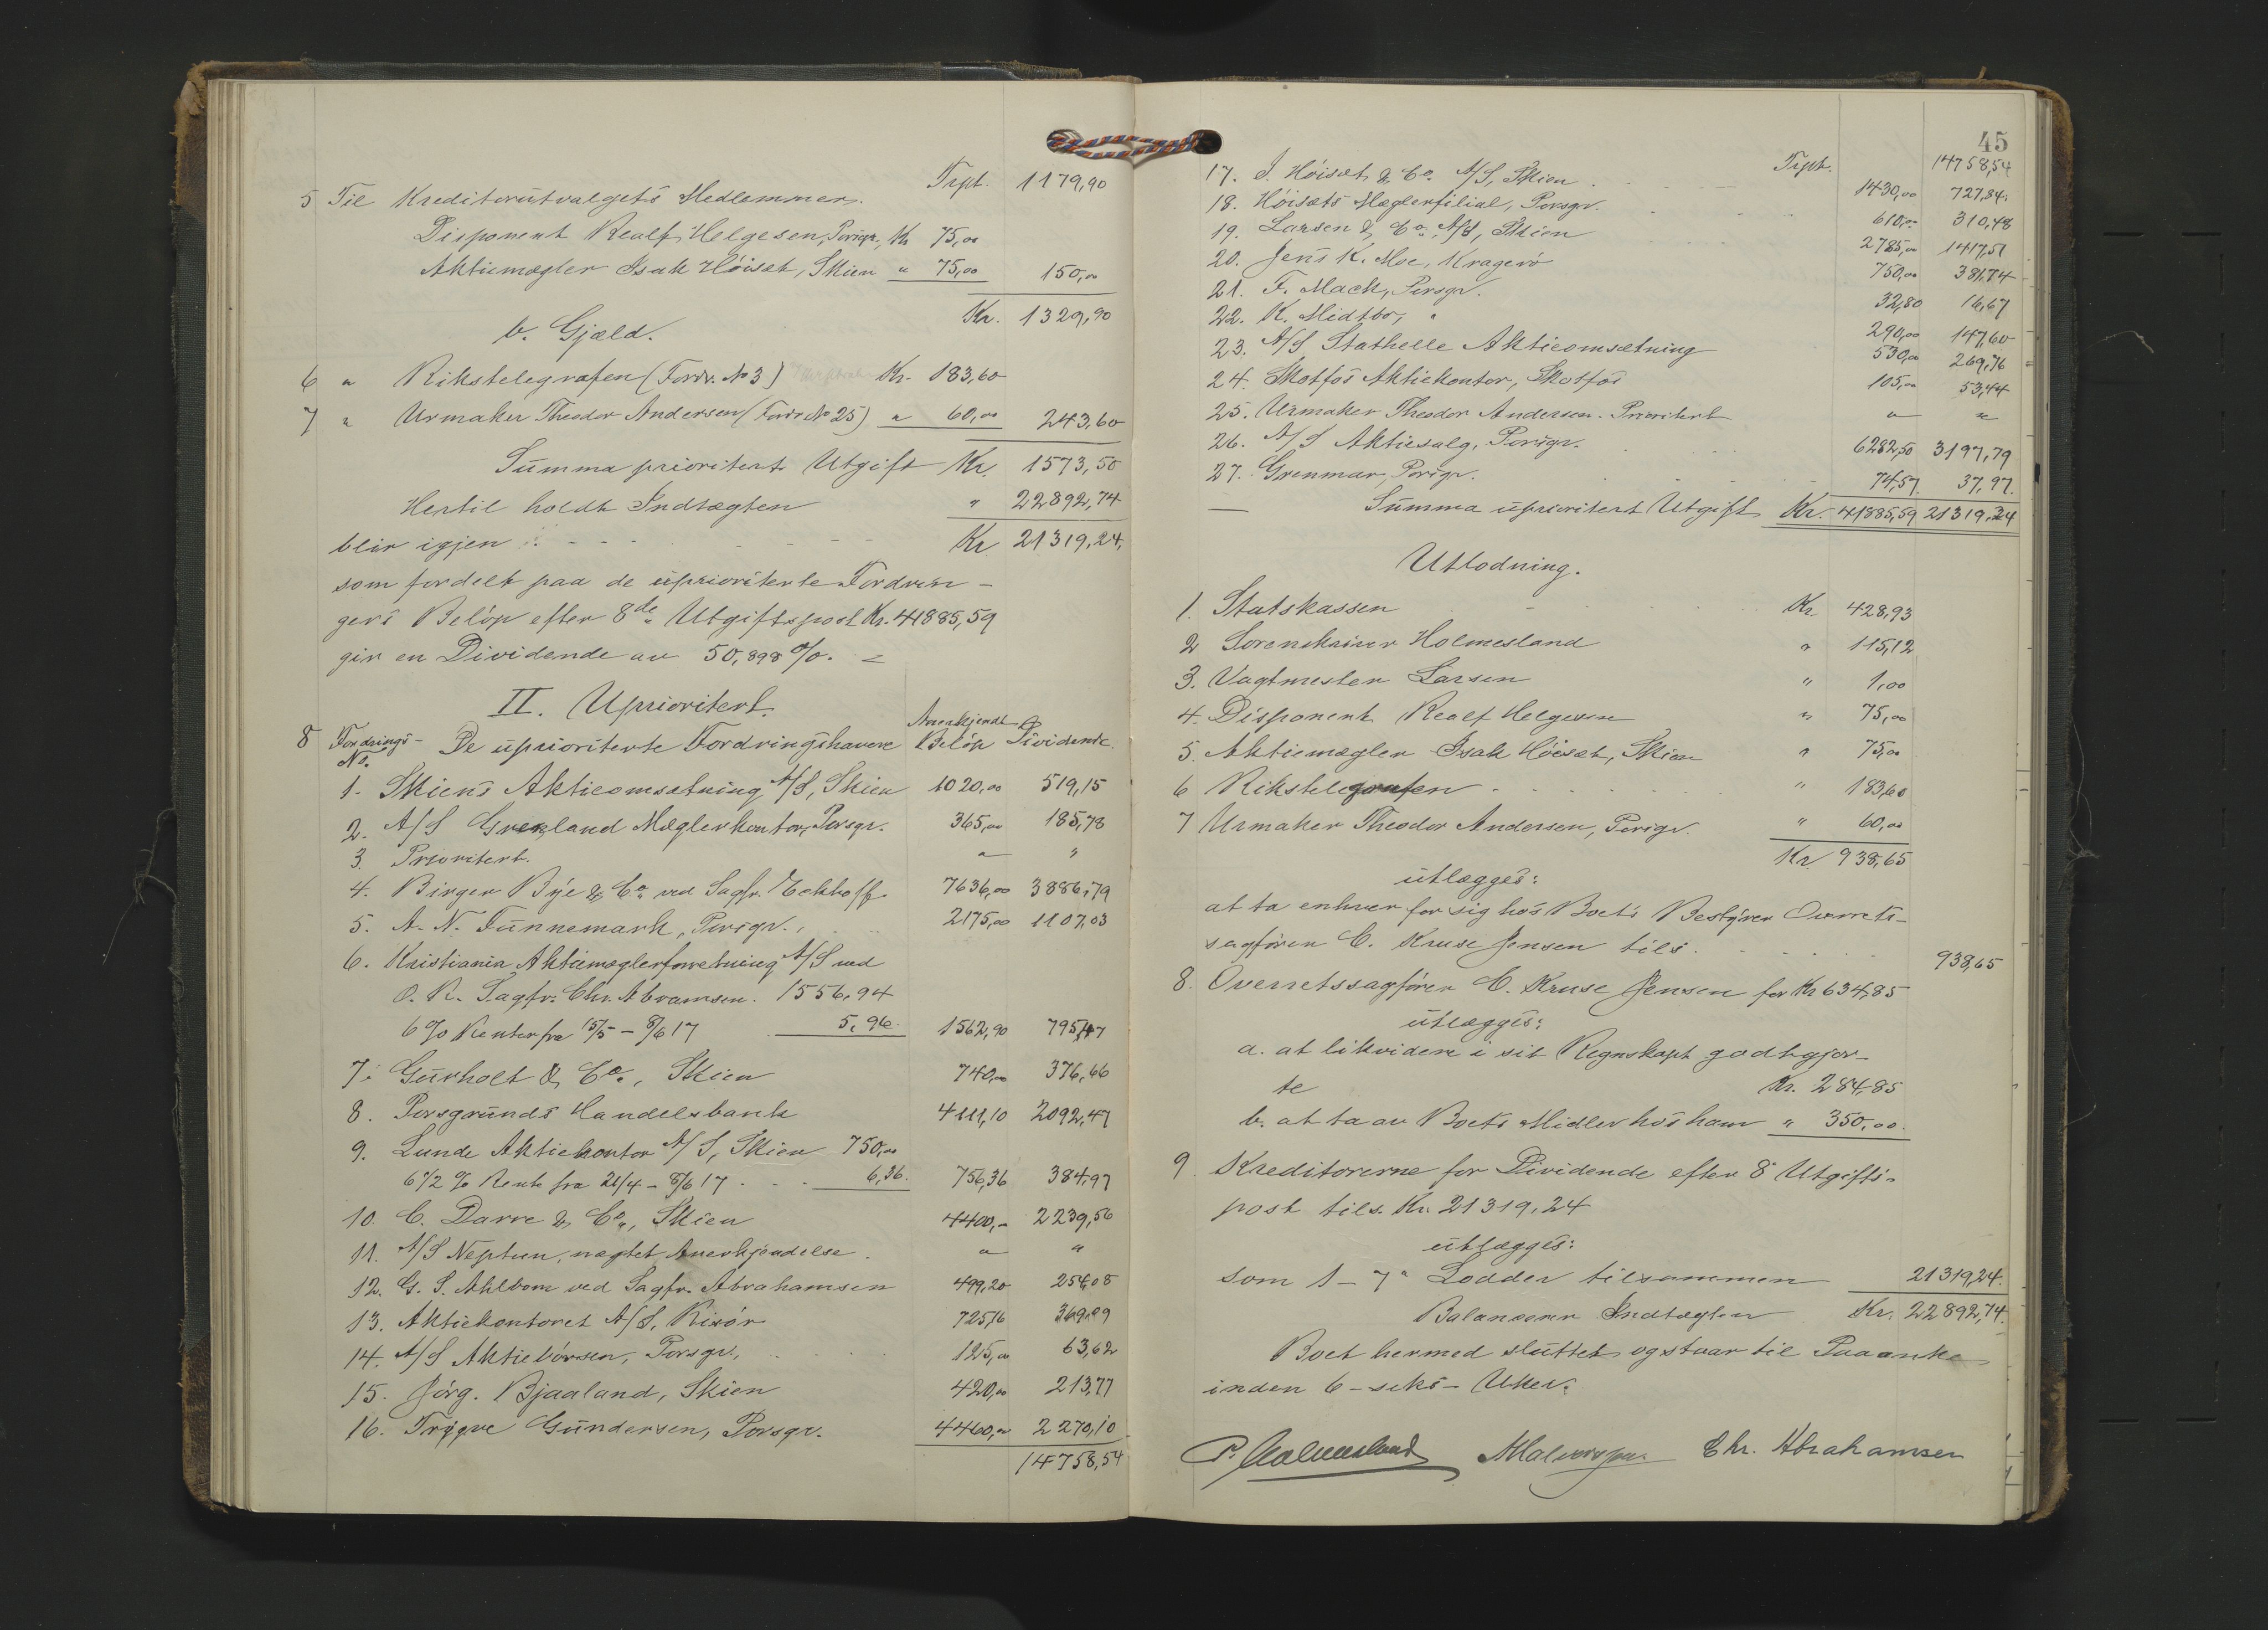 Trpt. 1179,90
5 Til Kreditorutvalgets Medlemmer.
Disponent Realf Helgesen, Porsgr., Kr. 75,00
Aktiemægler Isak Höisæt, Skien " 75,00 150,00
Kr. 1329,90
b. Gjæld.
6 " Rikstelegrafen (Fordr. No 3) Kr. 183,60
7 " Urmaker Theodor Andersen (Fordr No 25) " 60,00 243,60
Summa prioritert Utgift Kr. 1573,50
Hertil holdt Indtægten " 22892,74
blir igjen Kr 21319,24,
som fordelt paa de uprioriterte Fordrin-
gers Belöp efter 8de Utgiftspost Kr. 41885,59
gir en Dividende av 50,898 %.
II. Uprioritert.
8 Fordrings- De uprioriterte Fordringshavere Anerkjendt Belöp Dividende.
No.
1. Skiens Aktieomsætning A/S, Skien 1020,00 519,15
2. A/S Grenland Mæglerkontor, Porsgr. 365,00 185,78
3. Prioritert. " "
4. Birger Bye & Co. ved Sagfr. Eckhoff. 7636,00 3886,79
5. A. N. Funnemark, Porsgr., 2175,00 1107,03
6. Kristiania Aktiemæglerforretning A/S ved
O. R. Sagfr. Chr. Abramsen. 1556,94
6 % Renter fra 15/5 - 8/6 17 5,96. 1562,90 795,47
7. Gurholt & Co., Skien 740,00 376,66
8. Porsgrunds Handelsbank 4111,10 2092,47
9. Lunde Aktiekontor A/S, Skien 750,00
6 1/2 % Rente fra 21/4 - 8/6 17 6,36. 756,36 384,97
10. C. Darre & Co., Skien 4400,- 2239,56
11. A/S Neptun, nægtet Anerkjendelse. " "
12. G. S. Ahlbom ved Sagfr. Abrahamsen 499,20 254,08
13. Aktiekontoret A/S, Risör 725,16 369,09
14. A/S Aktiebörsen, Porsgr., 125,00 63,62
15. Jörg. Bjaaland, Skien 420,00 213,77
16. Trygve Gundersen, Porsgr. 4460,00 2270,10
14758,54
45
Trpt. 14758,54
17. I. Höisæt & Co. A/S, Skien 1430,00 727,84
18. Höisæts Mæglerfilial, Porsgr. 610,00 310,48
19. Larsen & Co., A/S, Skien 2785,00 1417,51
20. Jens K. Moe, Kragerö 750,00 381,74
21. F. Mack, Porsgr. 32,80 16,67
22. K. Midtbö, " 290,00 147,60
23. A/S Stathelle Aktieomsætning 530,00 269,76
24. Skotfos Aktiekontor, Skotfos 105,00 53,44
25. Urmaker Theodor Andersen. Prioritert " "
26. A/S Aktiesalg, Porsgr. 6282,50 3197,79
27. Grenmar, Porsgr. 74,57 37,97.
Summa uprioritert Utgift Kr. 41885,59 21319,24
Utlodning.
1. Statskassen Kr. 428,93
2 Sorenskriver Holmesland " 115,12
3. Vagtmester Larsen " 1,00
4. Disponent Realf Helgesen " 75,00
5. Aktiemægler Isak Höisæt, Skien " 75,00
6 Rikstelegrafen " 183,60
7 Urmaker Theodor Andersen, Porsgr. " 60,00
Kr. 938,65
utlægges:
at ta enhver for sig hos Boets Bestyrer Overrets-
sagförer C. Kruse Jensen tils. 938,65
8. Overretssagförer C. Kruse Jensen for Kr 634,85
utlægges:
a. at likvidere i sit Regnskapt godtgjor-
te Kr. 284,85
b. at ta av Boets Midler hos ham " 350,00.
9. Kreditorerne for Dividende efter 8 Utgifts-
post tils. Kr. 21319,24
utlægges:
som 1 - 7" Lodder tilsammen 21319,24.
Balancerer Indtægten Kr. 22892,74.
Boet hermed sluttet og staar til Paaanke
inden 6 - seks - Uker.
P. Holmesland Chr. Abrahamsen